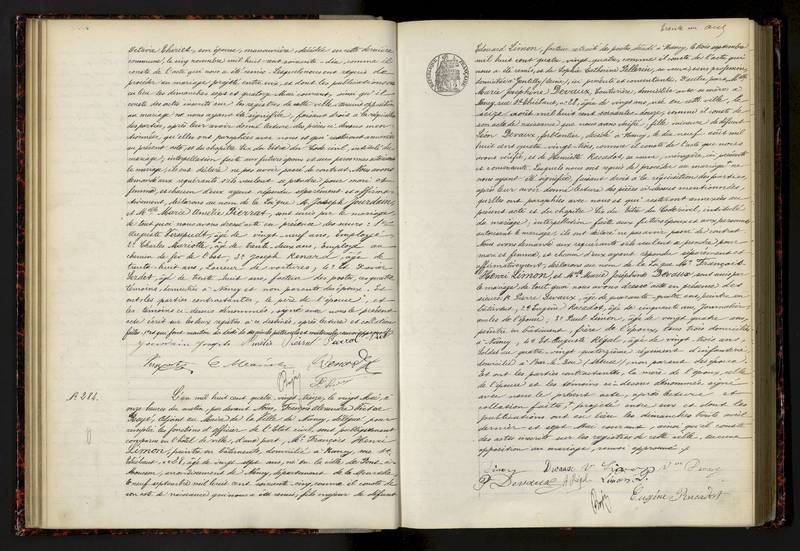 Octavie Thériet, son épouse, manouvrière, décédée en cette dernière
commune, le vingt novembre mil huit cent soixante-dix, comme il
conste de l'acte qui nous a été remis. Lesquels nous ont requis de
procéder au mariage projeté entre eux, et dont les publications ont
eu lieu les dimanches sept et quatorze Mai courant, ainsi qu'il
conste des actes inscrits sur les registres de cette ville, aucune opposition
au mariage ne nous ayant été signifiée, faisant droit à la réquisition
des parties, après leur avoir donné lecture des pièces ci-dessus men-
tionnées, qu'elles ont paraphées avec nous et qui resteront annexées
au présent acte, et du chapitre six du titre du Code civil, intitulé du
mariage; interpellation faite aux futurs époux et aux personnes autorisant
le mariage, ils ont déclaré ne pas avoir passé de contrat. Nous avons
demandé aux requérants s'ils veulent se prendre pour mari et
femme, et chacun d'eux ayant répondu séparément et affirma-
tivement, déclarons au nom de la Loi que M. Joseph Jourdain,
et Mlle Marie Amélie Pierrat, sont unis par le mariage
de tout quoi nous avons dressé acte en présence des sieurs: 1°
Auguste âgé de vingt-neuf ans, Employé
2° Charles Mariotte, âgé de trente-deux ans, Employé au
chemin de fer de l'Est, 3° Joseph Renard, âgé de
trente-huit ans, Loueur de voitures, 4° et
âgé de trente-huit ans, facteur des postes, les quatre
témoins, domiciliés à Nancy et non parents des époux. Et
ont les parties contractantes, le père de l'épouse, et
les témoins ci-dessus dénommés, signé avec nous le présent
acte écrit sur les deux registres à ce destinés, après lecture et collation
faites,
Jourdain Joseph Amélie Pierrat Pierrat
C Mariotte Renard
N. 288.
L'an mil huit cent quatre-vingt-treize, le vingt Mai, à
onze heures du matin, par devant Nous, François Alexandre
Adjoint au Maire de la Ville de Nancy, délégué pour
remplir les fonctions d'officier de l'État civil, ont publiquement
comparu en l'hôtel de ville, d'une part, M. François Henri
Limon, peintre en bâtiments, domicilié à Nancy, rue St
Thiébaut, n° 28, âgé de vingt-sept ans, né en la ville de Pont-à-
Mousson, arrondissement de Nancy, département de la Meurthe, le
neuf septembre mil huit cent soixante-cinq, comme il conste de
son acte de naissance qui nous a été remis, fils majeur de défunt
trente un
Edouard Limon, facteur retraité des postes, décédé à Nancy, le trois septembre
mil huit cent quatre-vingt-quatre, comme il conste de l'acte qui
nous a été remis, et de Sophie Catherine Pellerin, sa veuve, sans profession,
domiciliée à Gentilly (Seine), ici présente et consentante; D'autre part, Mlle
Marie Joséphine Devaux, Couturière, domiciliée avec sa mère à
Nancy, rue St Thiébaut, n° 28, âgée de vingt ans, née en cette ville, le
seize août mil huit cent soixante-douze, comme il conste de
son acte de naissance que nous avons vérifié, fille mineure de défunt
Léon Devaux, ferblantier, décédé à Nancy, le dix-neuf août mil
huit cent quatre-vingt-trois, comme il conste de l'acte que nous avons
vérifié, et de Henriette Racadot, sa veuve, ménagère, ici présente
et consentante. Lesquels nous ont requis de procéder au mariage ne
nous ayant été signifiée, faisant droit à la réquisition des parties,
après leur avoir donné lecture des pièces ci-dessus mentionnées,
qu'elles ont paraphées avec nous et qui resteront annexées au
présent acte et du chapitre six du titre du Code civil, intitulé
du mariage, interpellation faite aux futurs époux et aux personnes
autorisant le mariage, ils ont déclaré ne pas avoir passé de contrat.
Nous avons demandé aux requérants s'ils veulent se prendre pour
mari et femme, et chacun d'eux ayant répondu séparément et
affirmativement, déclarons au nom de la Loi que M. François
Henri Limon, et Mlle Marie Joséphine Devaux sont unis par
le mariage de tout quoi nous avons dressé acte en présence des
sieurs 1° Pierre Devaux, âgé de quarante-quatre ans, peintre en
bâtiment, 2° Eugène Racadot, âgé de cinquante ans, Journalier
oncles de l'épouse, 3° Paul Limon, âgé de vingt-quatre ans,
peintre en bâtiment, frère de l'époux, tous trois domiciliés
à Nancy, 4° et Auguste Régal, âgé de vingt-trois ans,
soldat au quatre-vingt-quatorzième régiment d'infanterie,
domicilié à Bar-le-Duc (Meuse), non parent des époux.
Et ont les parties contractantes, la mère de l'époux, celle
de l'épouse et les témoins ci-dessus dénommés, signé
avec nous le présent acte, après lecture et
collation faites, projeté entre eux et dont les
publications ont eu lieu les dimanches trente avril
dernier et sept Mai courant, ainsi qu'il conste
des actes inscrits sur les registres de cette ville, aucune
opposition au mariage, renvoi approuvé
Limon Devaux Vve Limon Vve Devaux
P Devaux Limon P.
Eugène Racadot